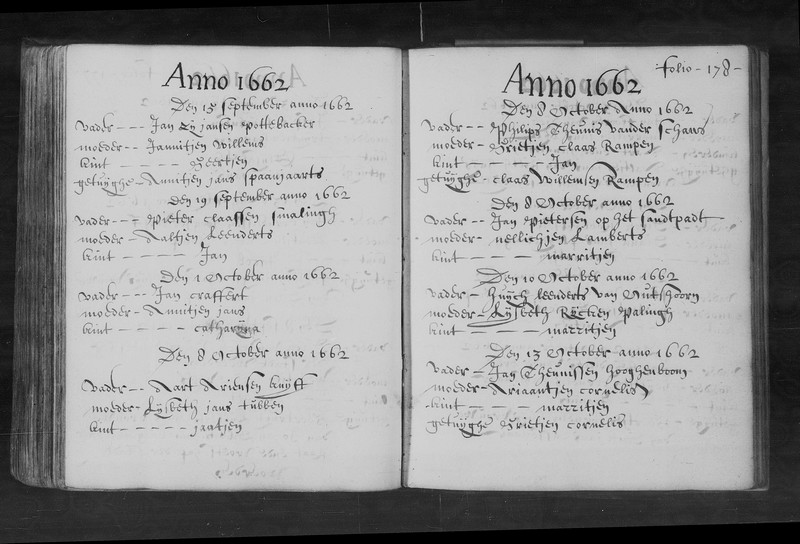 Anno 1662
Den 15 september anno 1662
vader - - - Jan Jansen Pottebacker
moeder - - Jannitjen Willems
kint - - - - - Geertjen
getuÿghe - Annitjen jans spaanjaarts
Den 19 september anno 1662
vader - - - Pieter claassen smalingh
moeder - Aaltjen Leenderts
kint - - - - - Jan
Den 1 October anno 1662
vader - - - Jan craffert
moeder - Annitjen jans
kint - - - - - catharÿna
Den 8 October anno 1662
vader - - Aart Ariensen kuÿff
moeder - Lÿsbeth jans tubben
kint - - - - - jaatjen
folio - 178 -
Anno 1662
Den 8 October Anno 1662
vader - - Philips Theunis vander schans
moeder - Grietjen claas Rampen
kint - - - - - Jan
getuÿghe - claas Willemsen Rampen
Den 8 October anno 1662
vader - - Jan Pietersen op het santpadt
moeder - nellichjen Lamberts
kint - - - - - marritjen
Den 10 October anno 1662
vader - huÿch leenderts van Outshoorn
moeder - Lÿsbeth Rÿcken Palingh
kint - - - - marritjen
Den 13 October anno 1662
vader - Jan Theunissen hooghenboom
moeder - Ariaantjen cornelis
kint - - - - marritjen
getuÿghe Grietjen cornelis